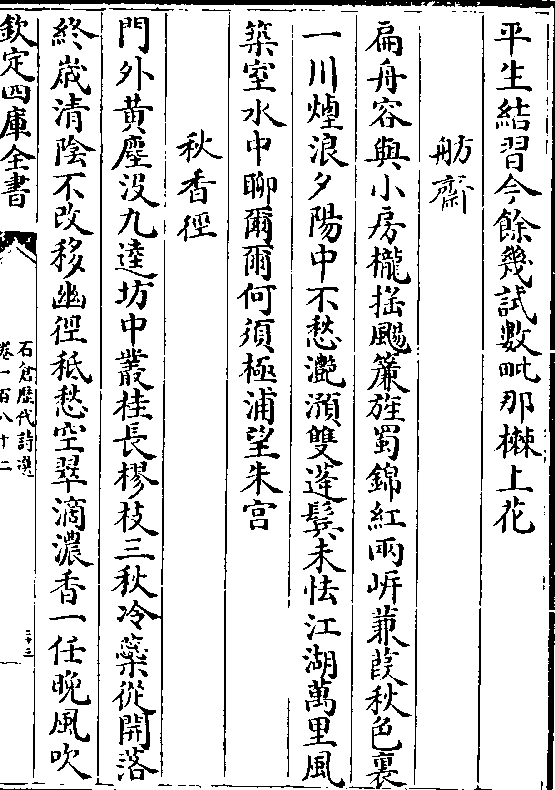 平生結習今餘幾試數毗那樕上花
舫齋
扁舟容與小房櫳揺颺簾旌蜀錦紅兩㟁蒹葭秋色裏
一川煙浪夕陽中不愁灧澦雙蓬鬂未怯江湖萬里風
築室水中聊爾爾何須極浦望朱宫
秋香徑
門外黄塵没九逵坊中叢桂長樛枝三秋冷蘂從開落
終歳清陰不改移幽徑秪愁空翠滴濃香一任晚風吹
欽定四庫全書
石倉歴代詩選
卷一百八十二